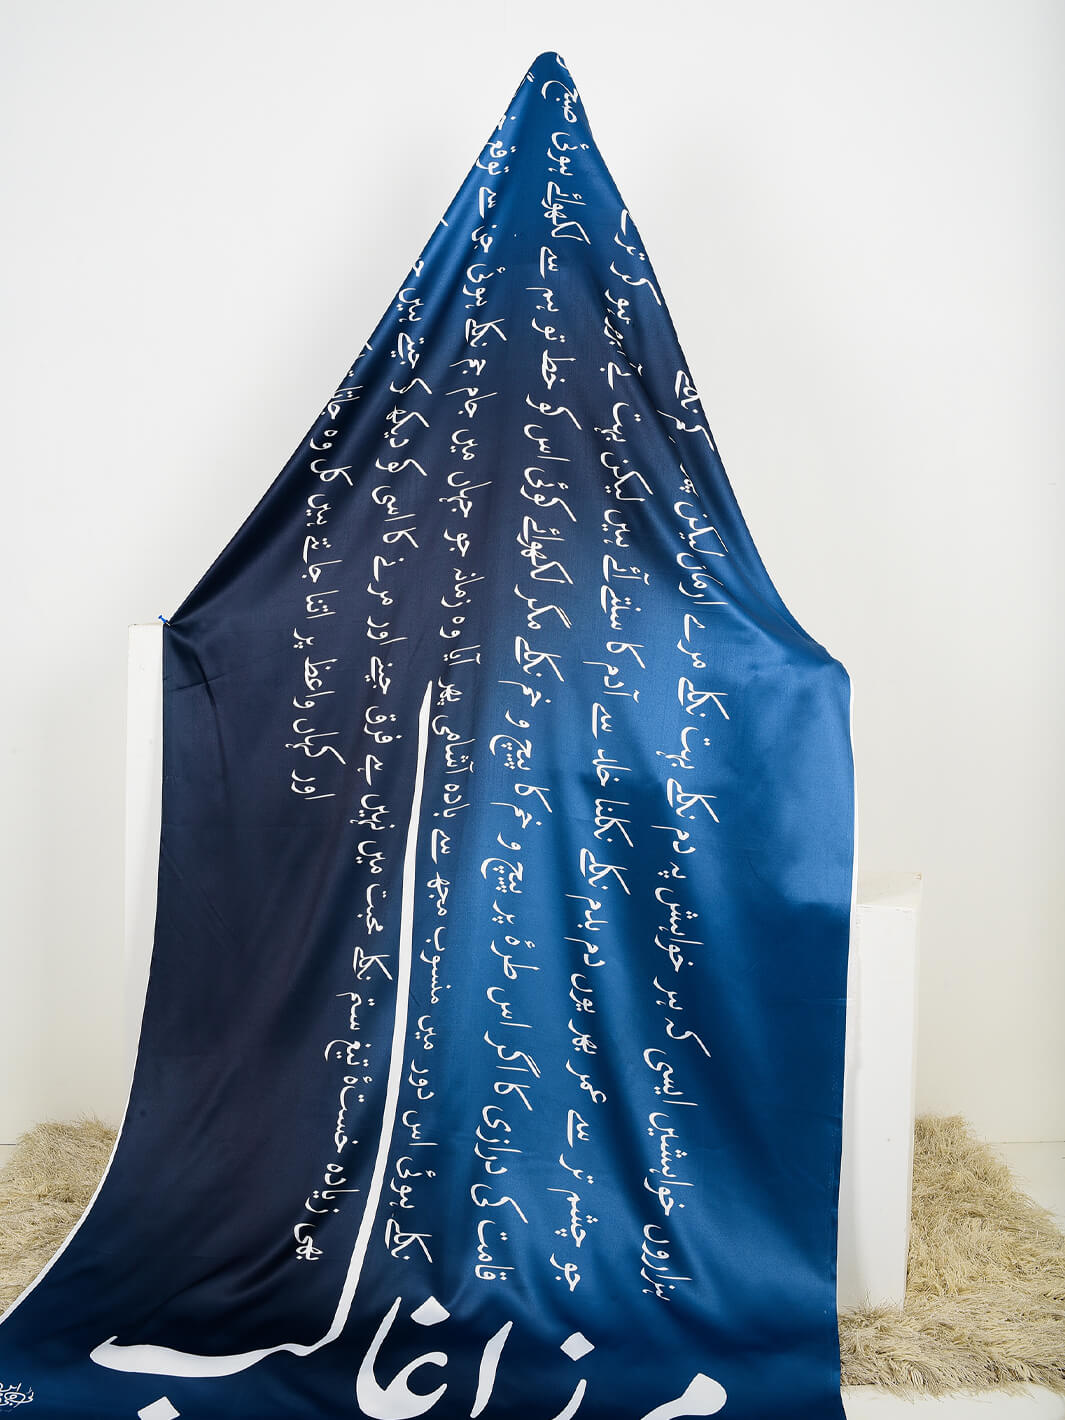 ہزاروں خواہشیں ایسی کہ ہر خواہش پہ دم نکلے بہت نکلے مرے ارماں لیکن پھر کم نکلے
جو چشم تر سے عمر بھر یوں دم بدم نکلے نکلنا خلد سے آدم کا سنتے آئے ہیں لیکن بہت بے آبرو ہو کر ترے
قامت کی درازی کا اگر اس طرۂ پر پیچ و خم کا پیچ و خم نکلے مگر لکھوائے کوئی اس کو خط تو ہم سے لکھوائے ہوئی صبح
نکلے ہوئی اس دور میں منسوب مجھ سے بادہ آشامی پھر آیا وہ زمانہ جو جہاں میں جام جم نکلے ہوئی جن سے توقع
بھی زیادہ خستۂ تیغ ستم نکلے محبت میں نہیں ہے فرق جینے اور مرنے کا اسی کو دیکھ کر جیتے ہیں
اور کہاں واعظ پر اتنا جانتے ہیں کل وہ جاتا
مرزا غالب